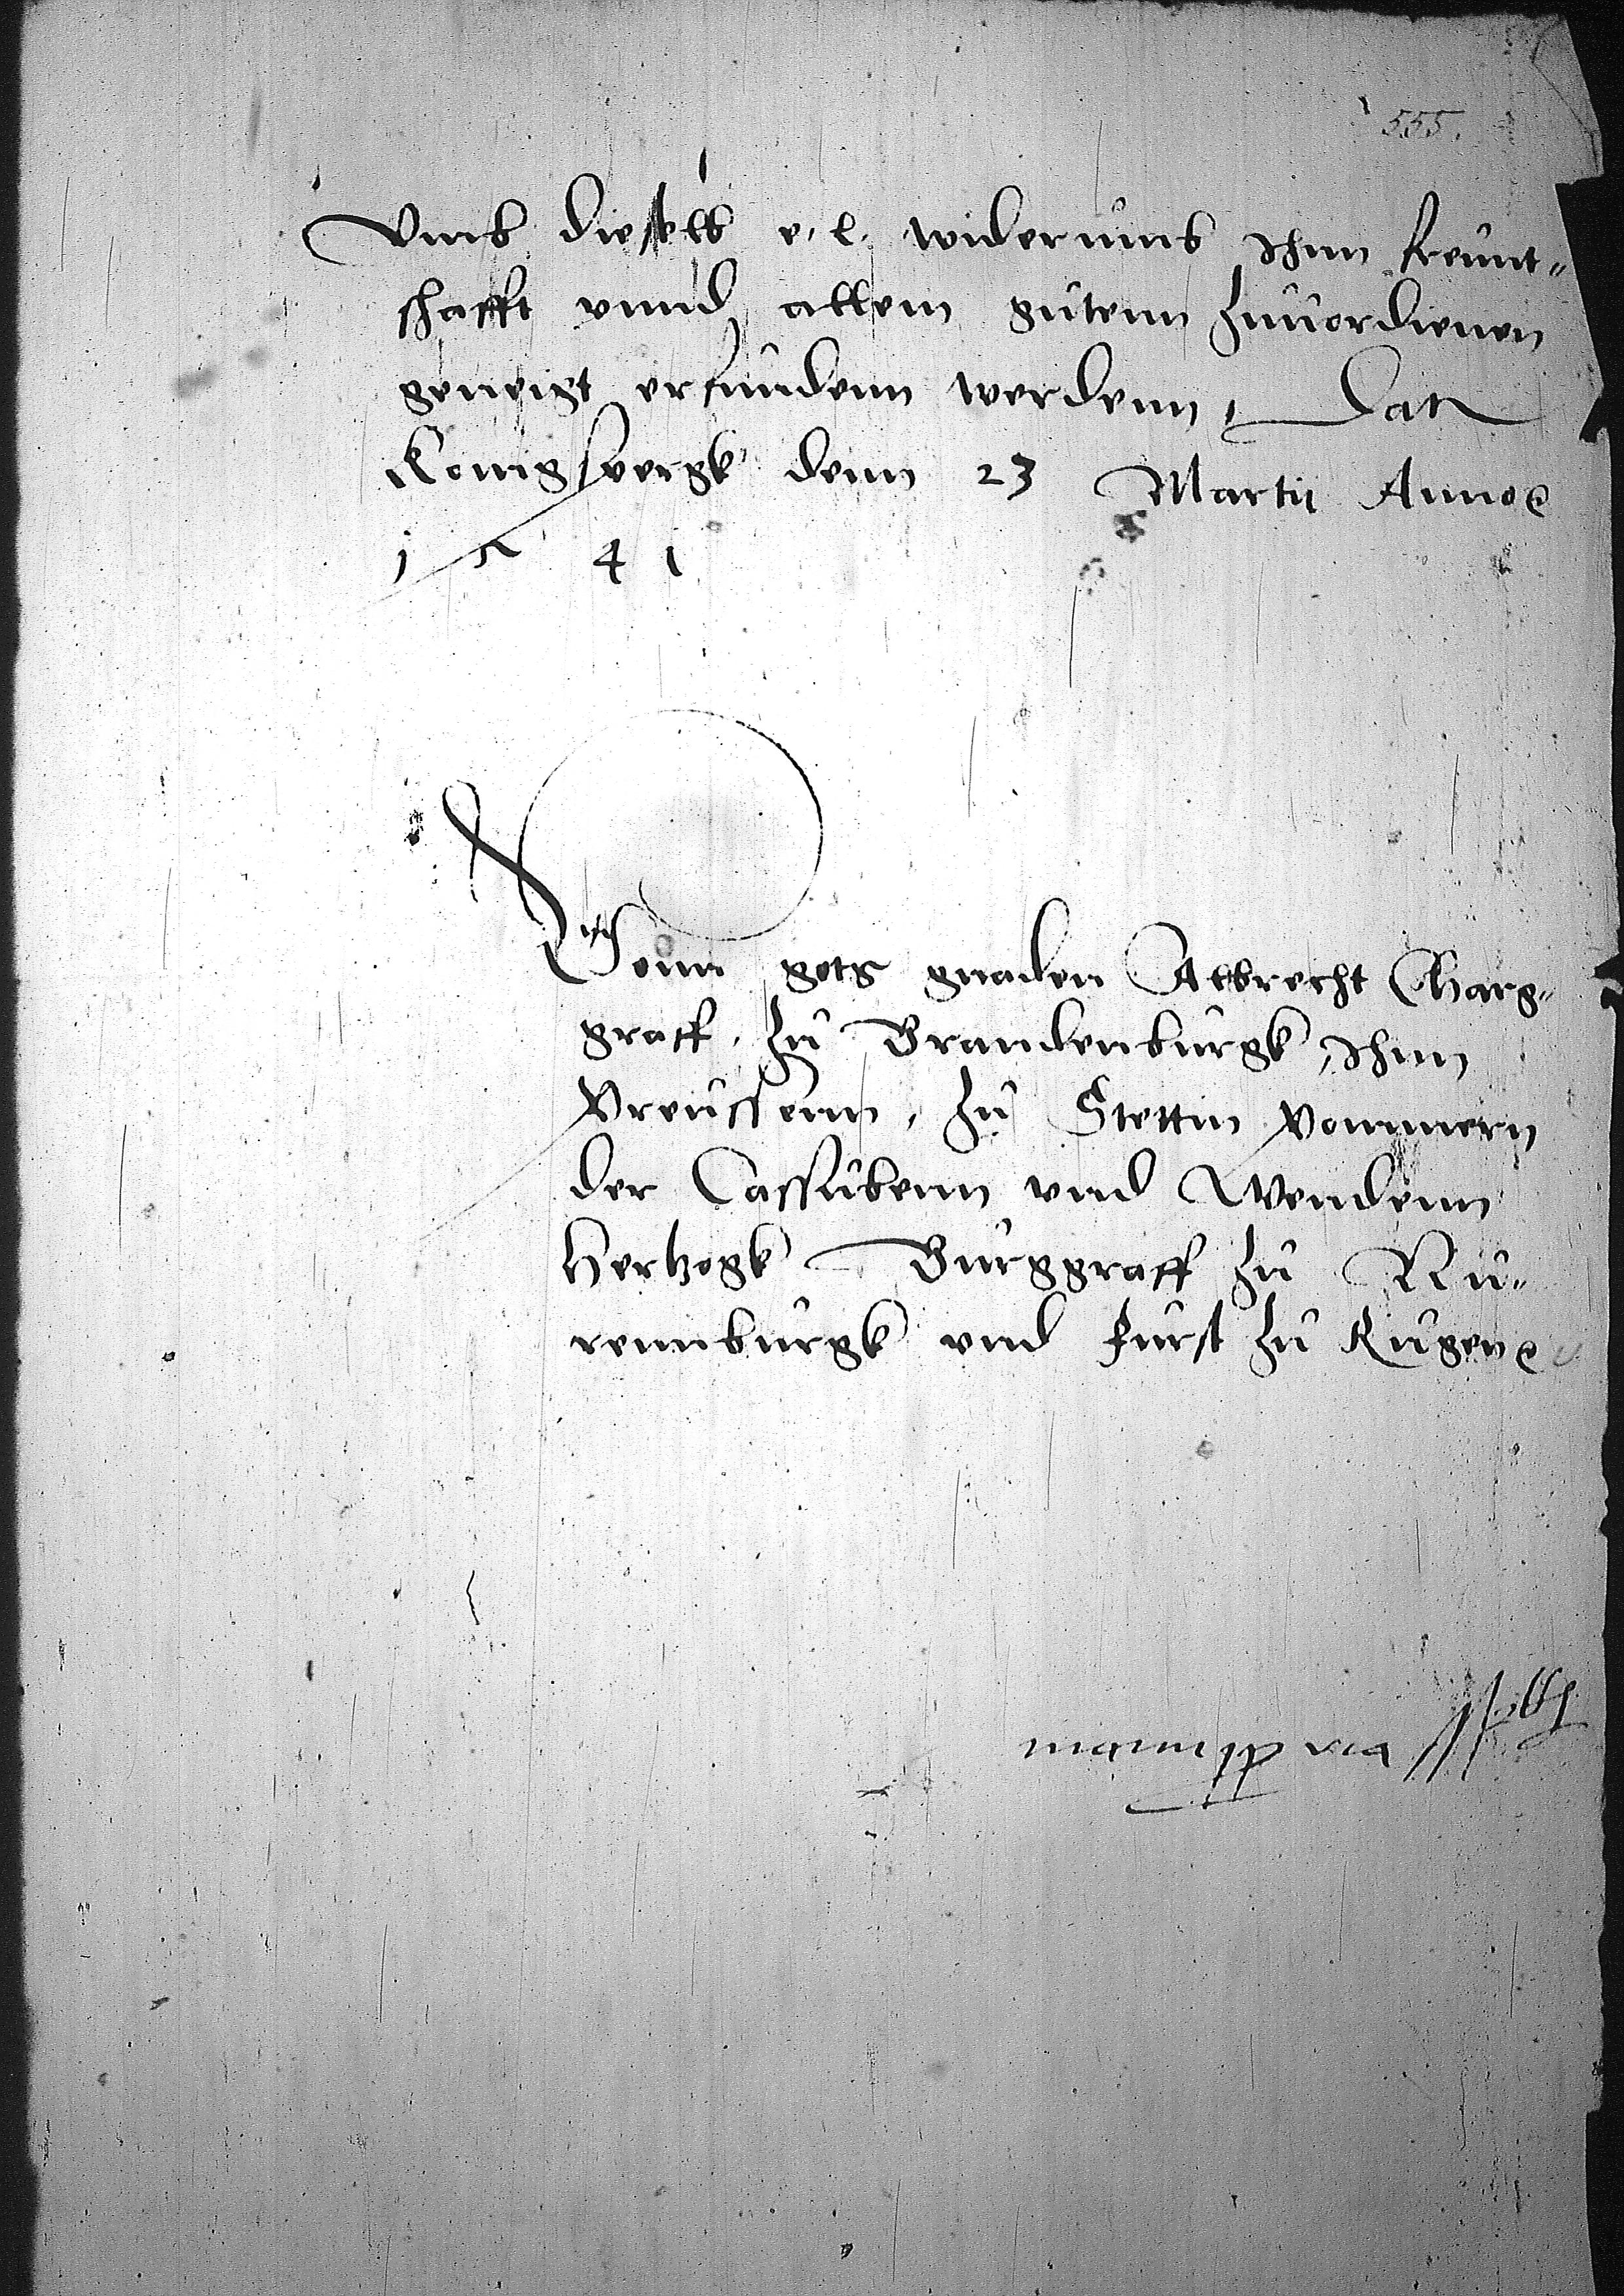 555.
Vmb dieselb e. l. widerumb Ihnn freunt=
schafft vnnd allem gutenn zuuordienen
geneigt erfundenn werdenn, Dat
Konigspergk denn 23 Martij Anno
1541
Vonn gots gnaden Albrecht Marg=
graff zu Brandenburgk, Ihnn
Preussenn, zu Stettin Pommern
der Cassubenn vnd Wendenn
Hertzogk Burggraff zu Nu=
rennburgk vnd furst zu Rugen
manu ppria